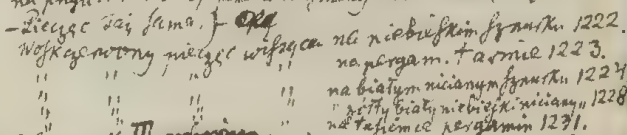 - Pieczęć taż sama. } 
Wosk czerwony pieczęć wisząca na niebieskim sznurku 1222.
" " " " na pergam. taśmie 1223.
" " " " na białym nicianym sznurku 1224
" " " " " żółty biały niebieski niciany " 1228
" " " na taśmie pergamin 1231.